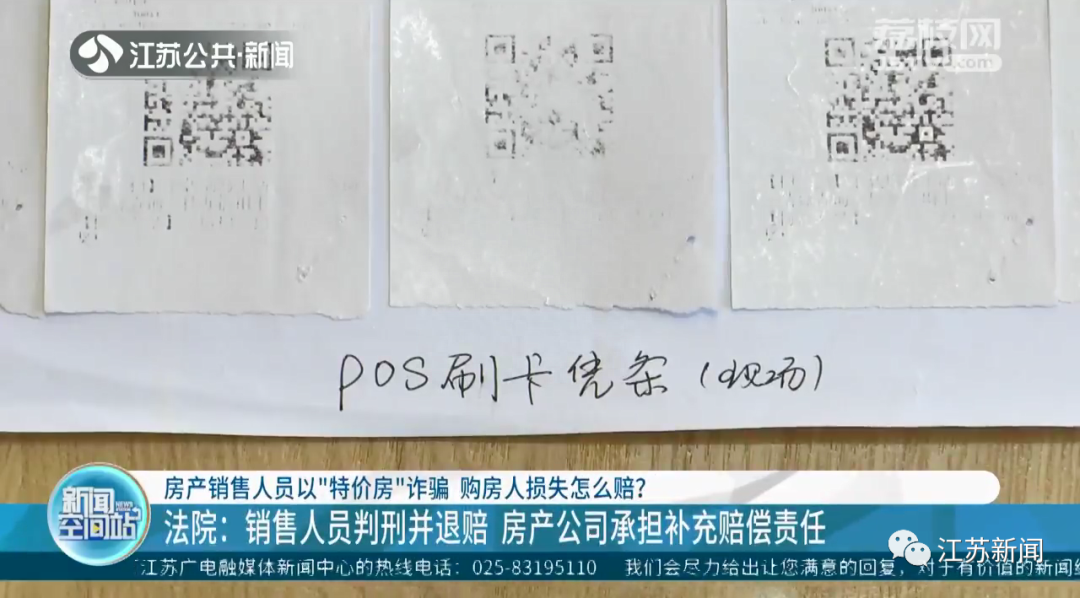 江苏公共·新闻
荔枝网
POS刷卡凭条(现场)
房产销售人员以"特价房"诈骗 购房人损失怎么赔?
法院:销售人员判刑并退赔 房产公司承担补充赔偿责任
新闻
NEWS
空间站
江苏新闻
江苏广电融媒体新闻中心的热线电话:025-83195110 我们会尽力给出让您满意的回复,对于有价值的新闻线